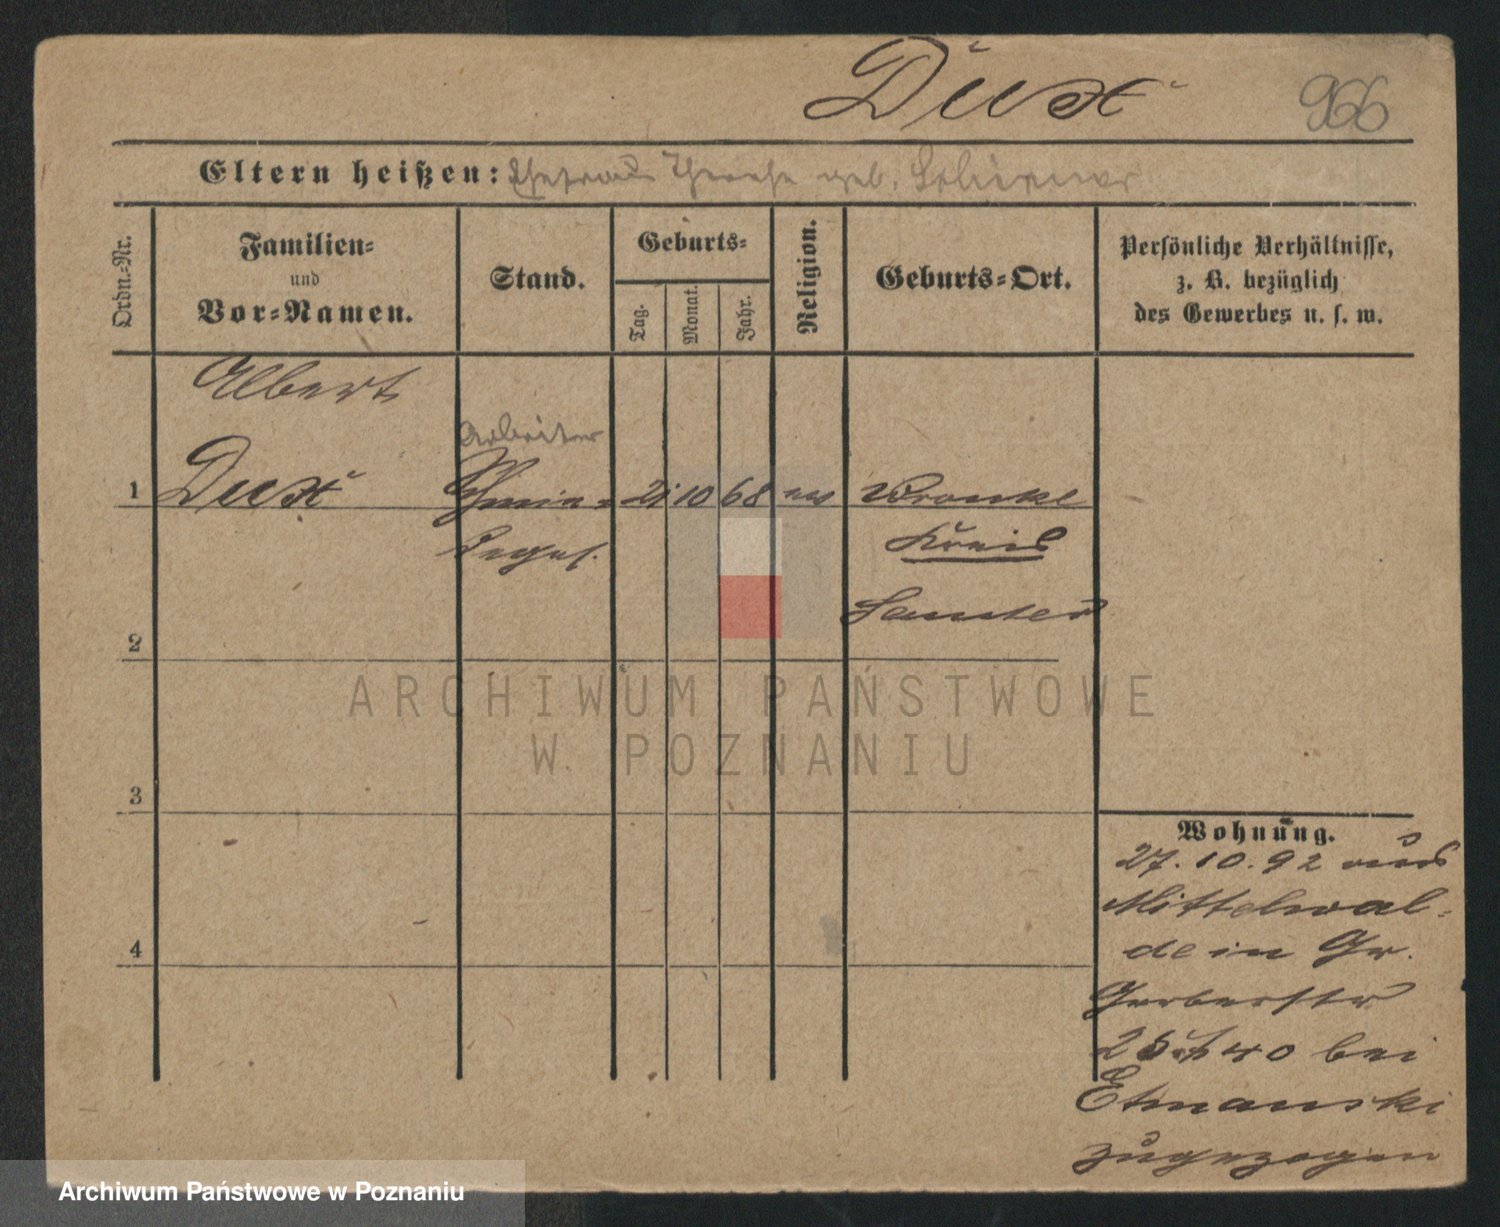 Dux
966
Eltern heißen: Ehefrau Therese geb.
Ordn.-Nr.
Familien-
und
Vor-Namen.
Stand.
Geburts-
Tag.
Monat.
Jahr.
Religion.
Geburts-Ort.
Persönliche Verhältnisse,
z. B. bezüglich
des Gewerbes u. s. w.
Albert
Arbeiter
1 Dux 21 10 68 ev Wronke
Kreis
Samter
2
3
4
ARCHIWUM PAŃSTWOWE
W POZNANIU
Wohnung.
27. 10. 92 aus
Mittelwal-
de in Gr.
Gerberstr
40 bei
Etmanski
zugezogen
Archiwum Państwowe w Poznaniu